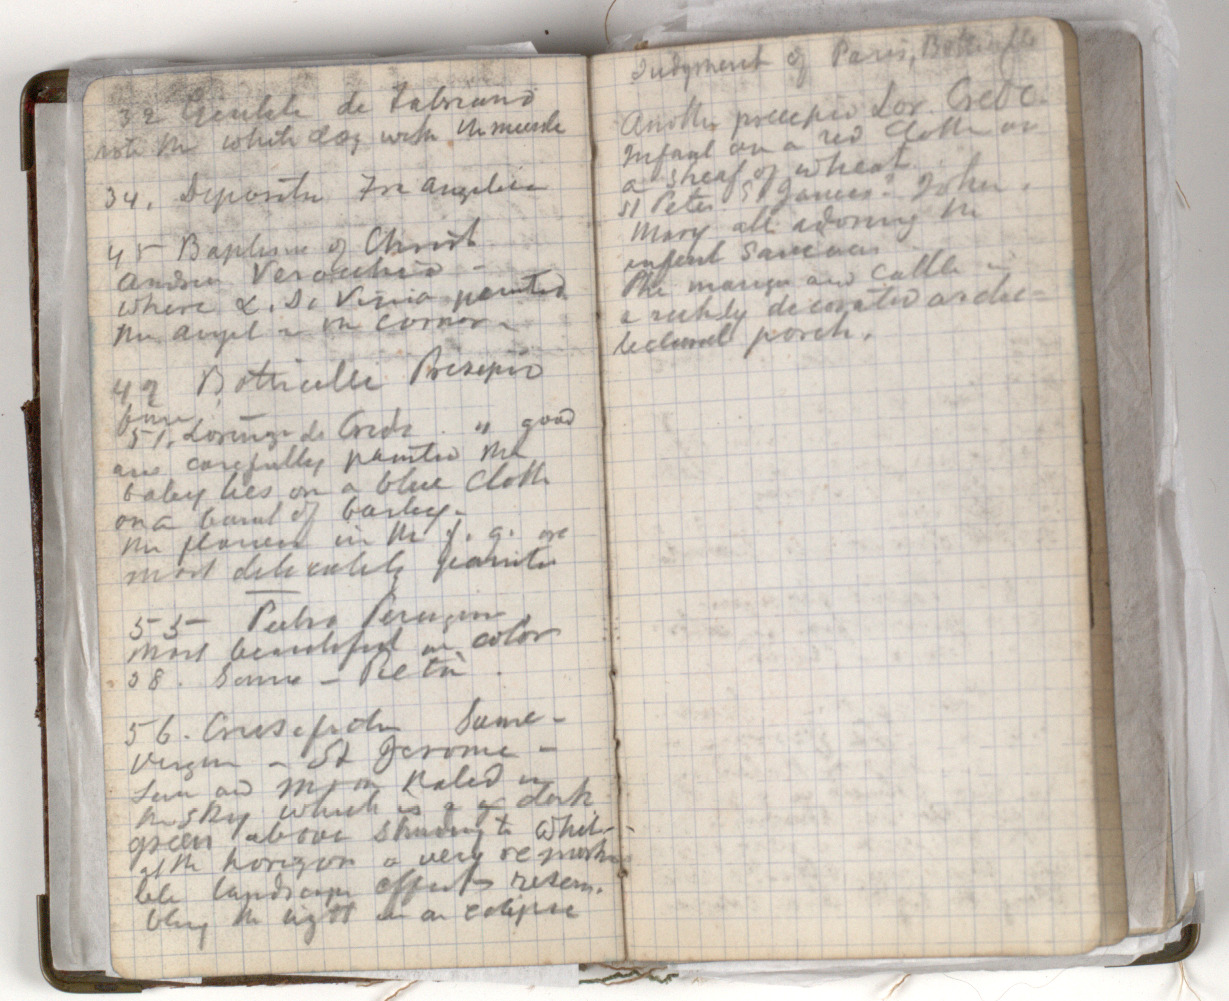 32 Gentile de Fabriano
note the white dog with the muzzle
34. Deposition Fra Angelico
45 Baptism of Christ
Andrea Verocchio -
where L. Da Vinci painted
the angel in the corner -
49 Botticelli Presepio
fine
51. Lorenzo di Credi " good
and carefully painted the
baby lies on a blue cloth
on a band of barley -
the flowers in the f. g. are
most delicately painted
55 Pietro Perugino
most beautiful in color
58. Same - Pieta
56. Crucifixion Same -
Virgin - St Jerome -
Sun and Moon in
the sky which is a dark
green above shading to white -
at the horizon a very remarka
ble landscape effect resem.
bling the light in an eclipse
Judgment of Paris, Botticelli
Another precepio Lor. Credi.
Infant on a red cloth on
a sheaf of wheat.
St Peter St James? John.
Mary all adoring the
infant Saviour
The manger and cattle in
a richly decorated archi=
tectural porch.